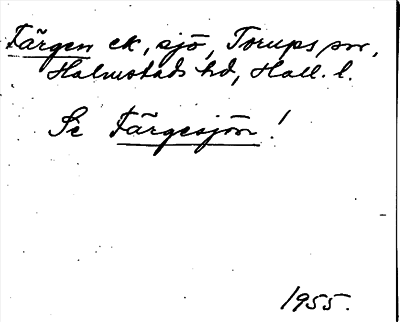 Färgen ek, sjö, Torups sn,
Halmstads hd, Hall. l.
Se Färgesjön!
1955.